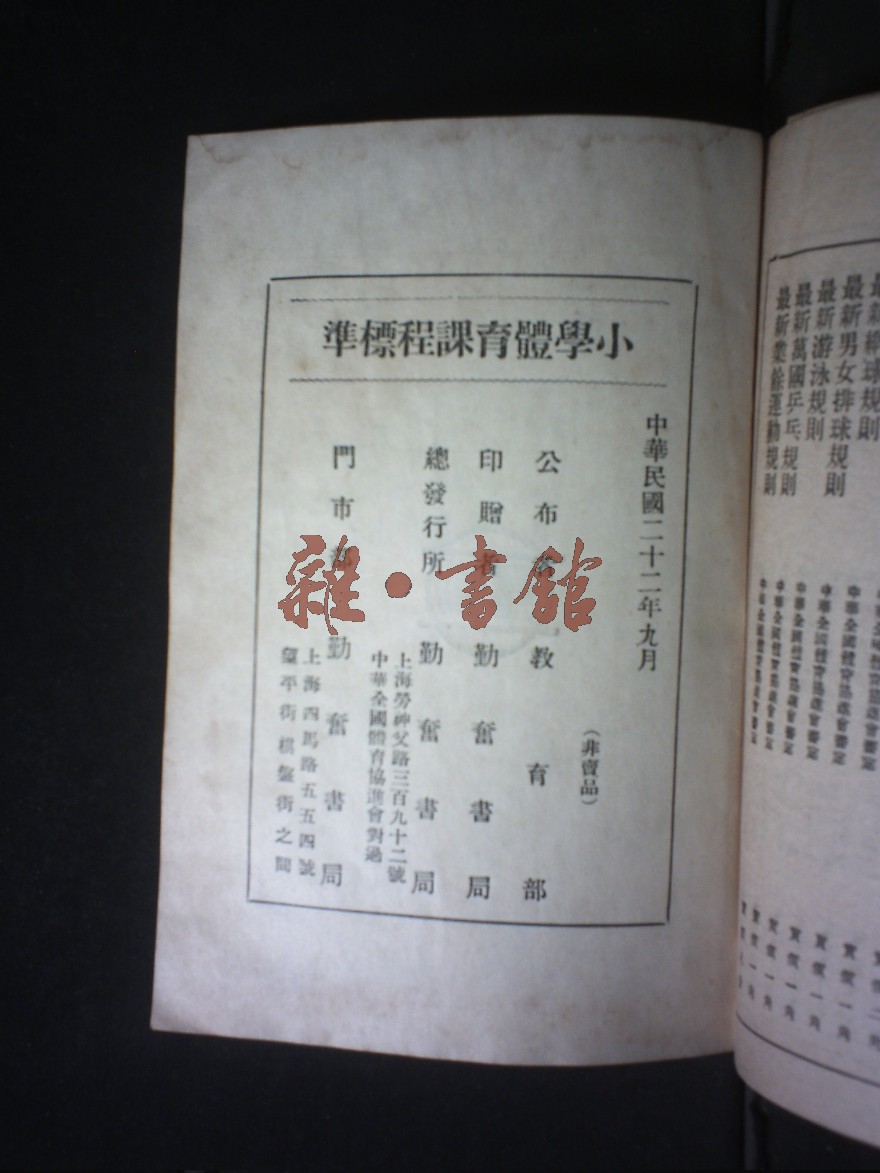 小學體育課程標準
中華民國二十二年九月
(非賣品)
公布者 教育部
印贈者 勤奮書局
總發行所 勤奮書局
上海勞神父路三百九十二號
中華全國體育協進會對過
門市部 勤奮書局
上海四馬路五五四號
望平街棋盤街之間
雜·書館
最新男女排球規則 中華全國體育協進會審定 實價一角
最新游泳規則 中華全國體育協進會審定 實價一角
最新萬國乒乓規則 中華全國體育協進會審定 實價一角
最新業餘運動規則 中華全國體育協進會審定